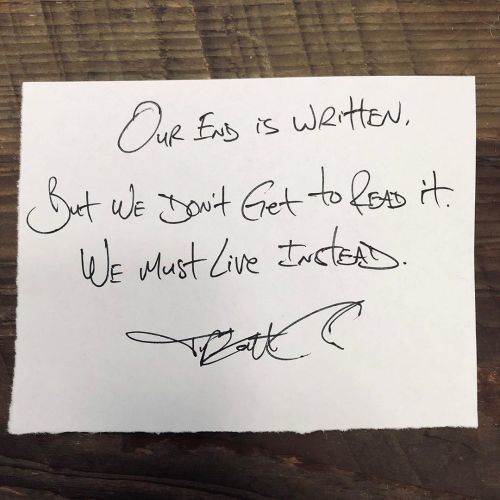 Our End is Written.
But We Don't Get to Read it.
We Must Live Instead.